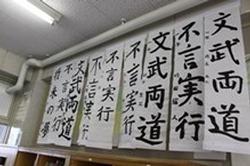 文武両道
不言実行
文武両道
不言実行
不言実行
不言実行
文武両道